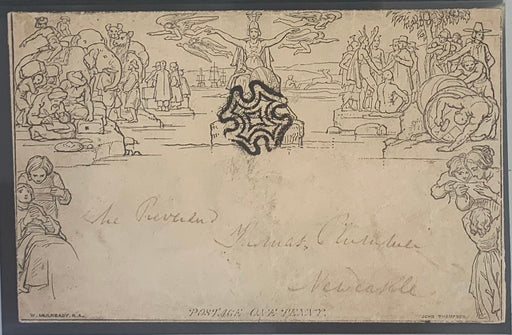 The Reverend
Thomas
Newcastle
POSTAGE ONE PENNY.
W. MULREADY, R.A.
JOHN THOMPSON